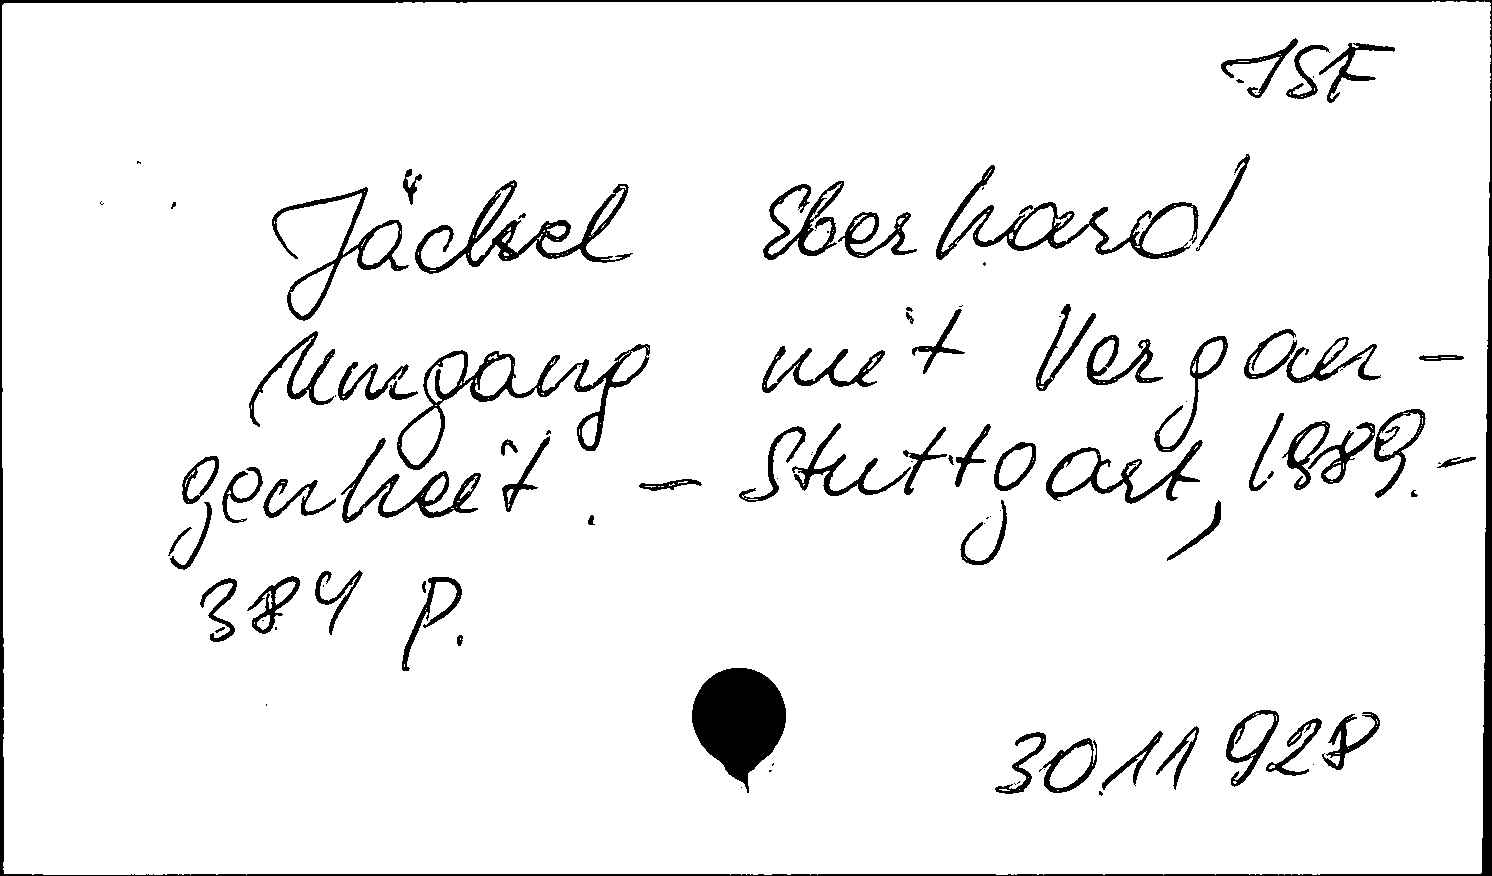 JSF
Jäckel Eberhard
Umgang mit Vergan-
genheit. - Stuttgart, 1989.-
384 p.
3011928